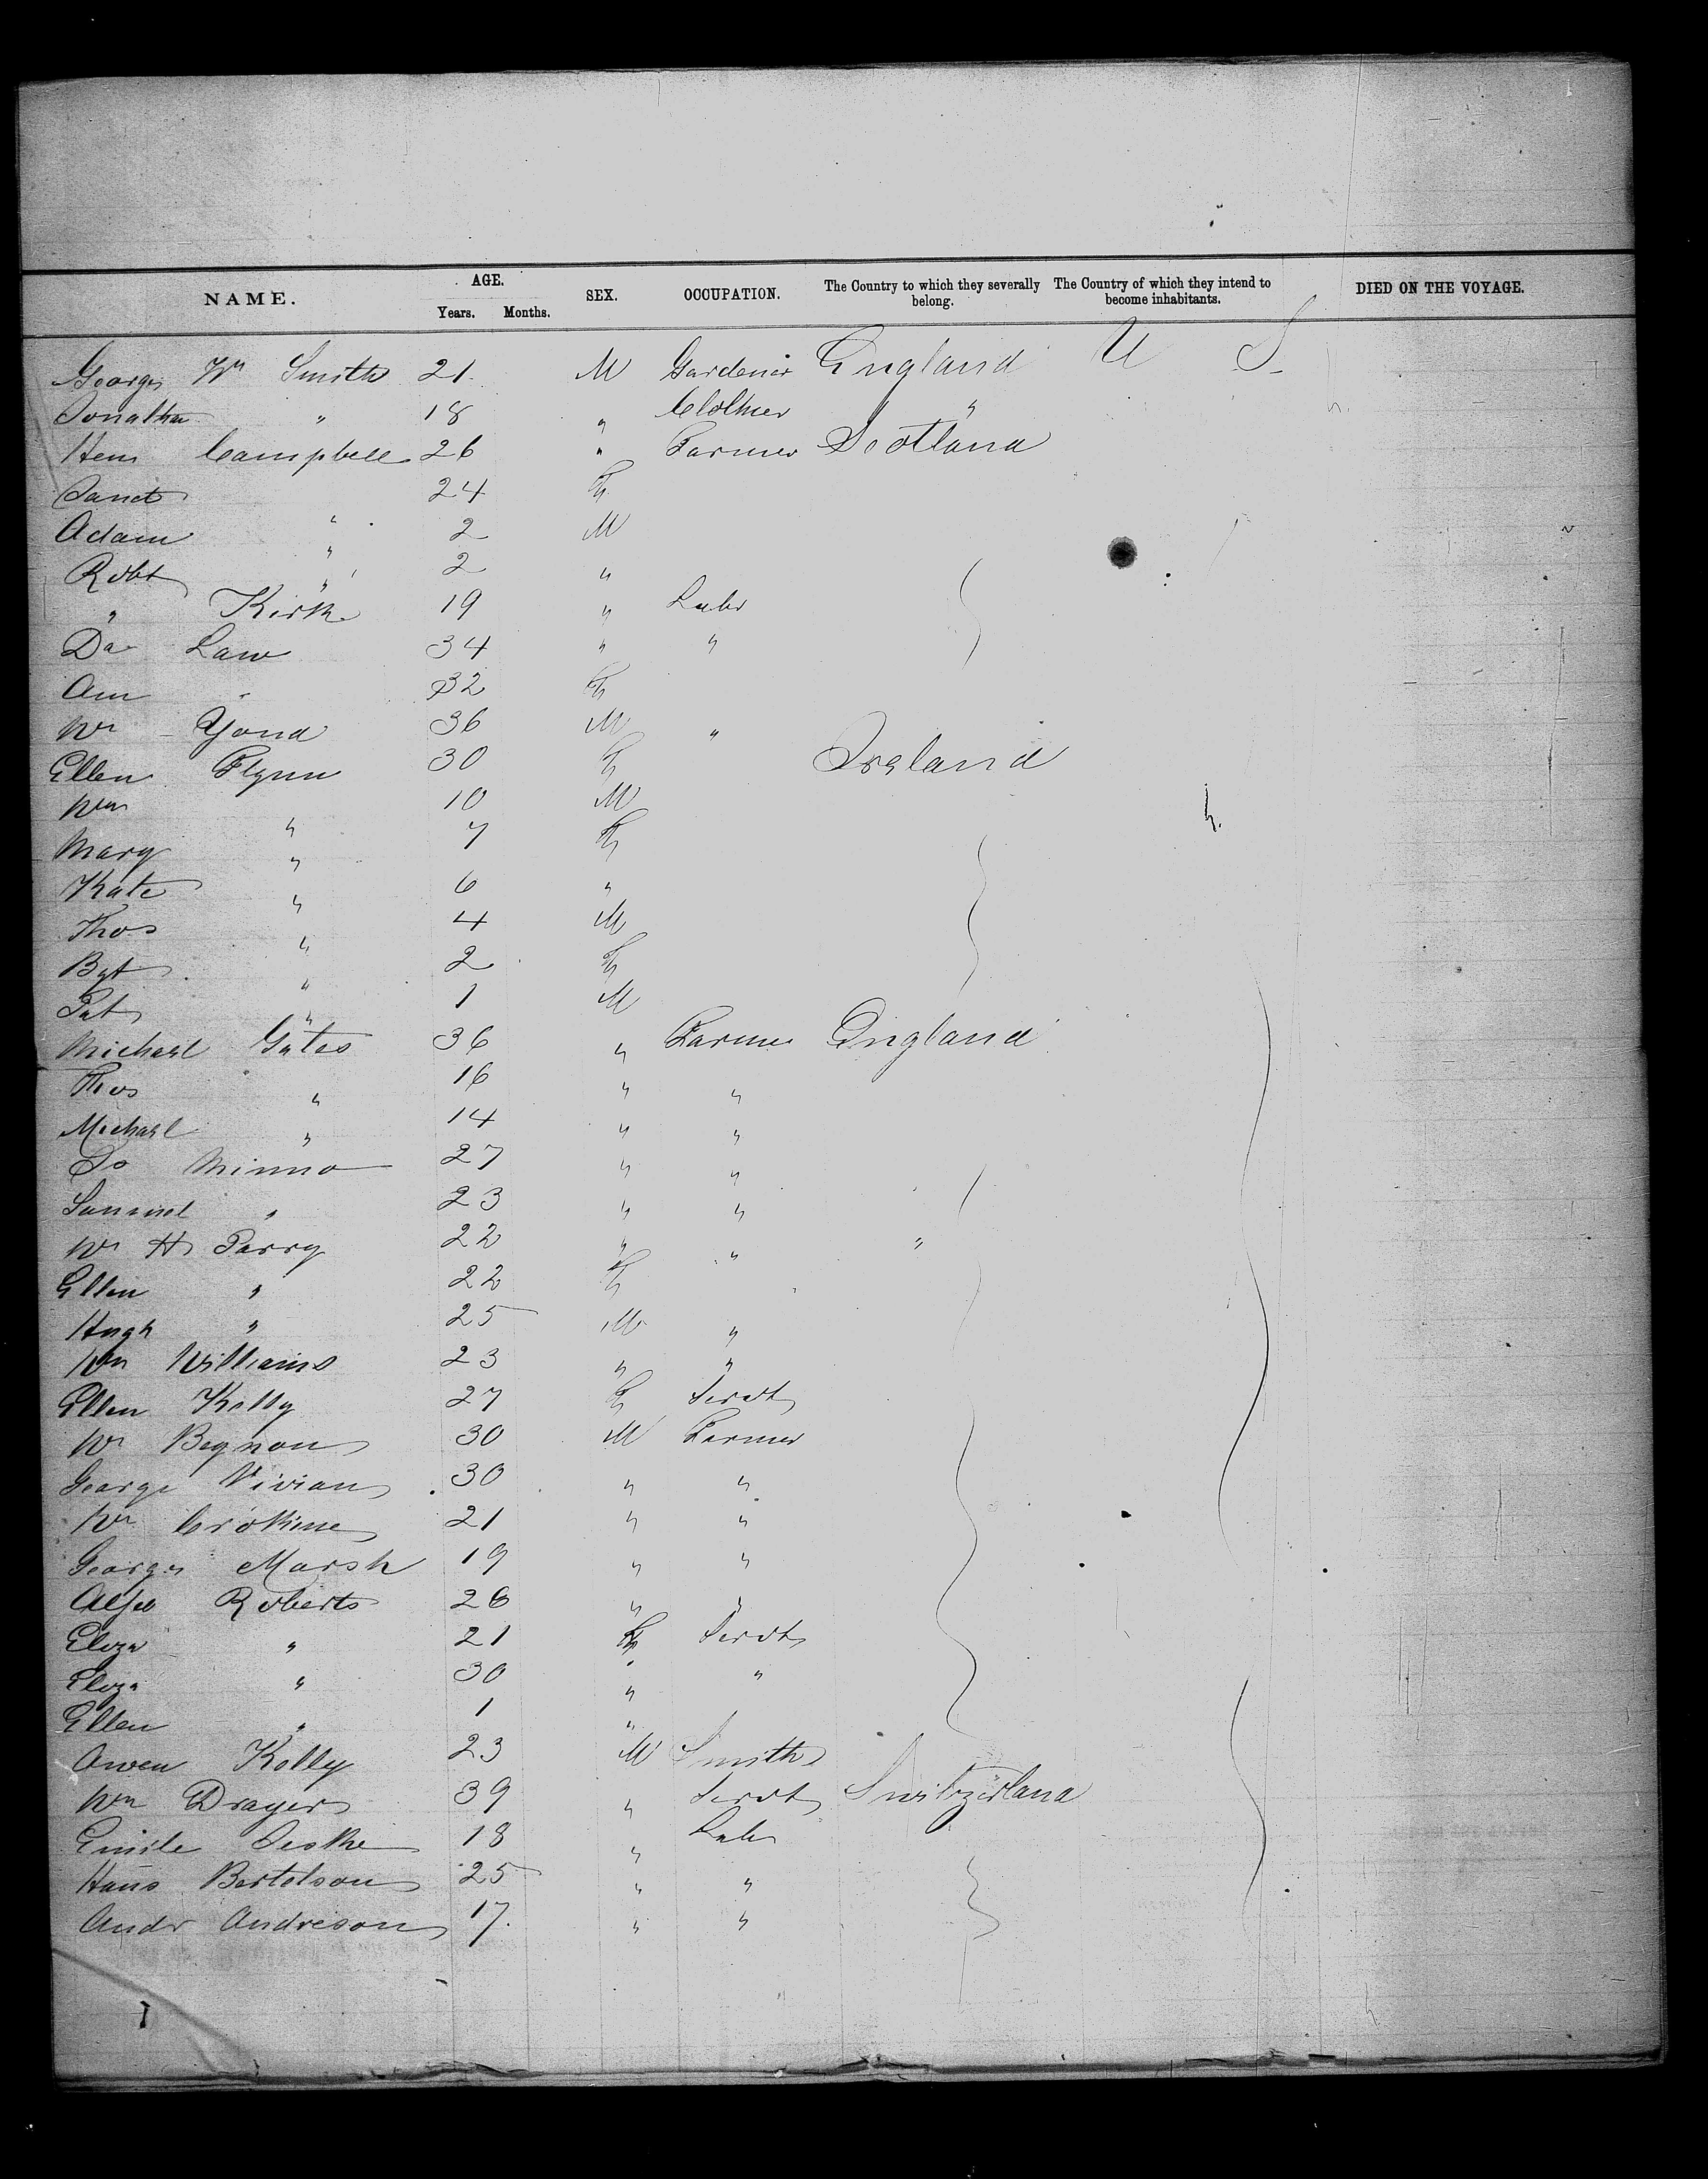 NAME. AGE. SEX. OCCUPATION. The Country to which they severally belong. The Country of which they intend to become inhabitants. DIED ON THE VOYAGE.
Years. Months.
George Wm Smith 21 M Gardener England U S
Jonathan " 18 " Clothier "
Hen Campbell 26 " Farmer Scotland
Janet " 24 F
Adam " 2 M
Robt " 2 "
" Kirk 19 " Labr
Da Law 34 " "
Ann " 32 F
Wm Yond 36 M "
Ellen Flynn 30 F Ireland
Wm " 10 M
Mary " 7 F
Kate " 6 "
Thos " 4 M
Bgt " 2 F
Pat " 1 M
Michael Gates 36 " Farmer England
Thos " 16 " "
Michael " 14 " "
Jo Minno 27 " "
Samuel " 23 " "
Wm H Parry 22 " " "
Ellen " 22 F
Hugh " 25 M "
Wm Williams 23 " "
Ellen Kelly 27 F Servt
Wm Beynon 30 M Farmer
George Vivian 30 " "
Wm 21 " "
George Marsh 19 " "
Alfd Roberts 26 " "
Eliza " 21 F Servt
Eliza " 30 " "
Ellen " 1 "
Owen Kelly 23 M Smith
Wm Drayer 39 " Servt Switzerland
Emile 18 " Labr
Hans Bertelson 25 " "
Andr Andreson 17 " "